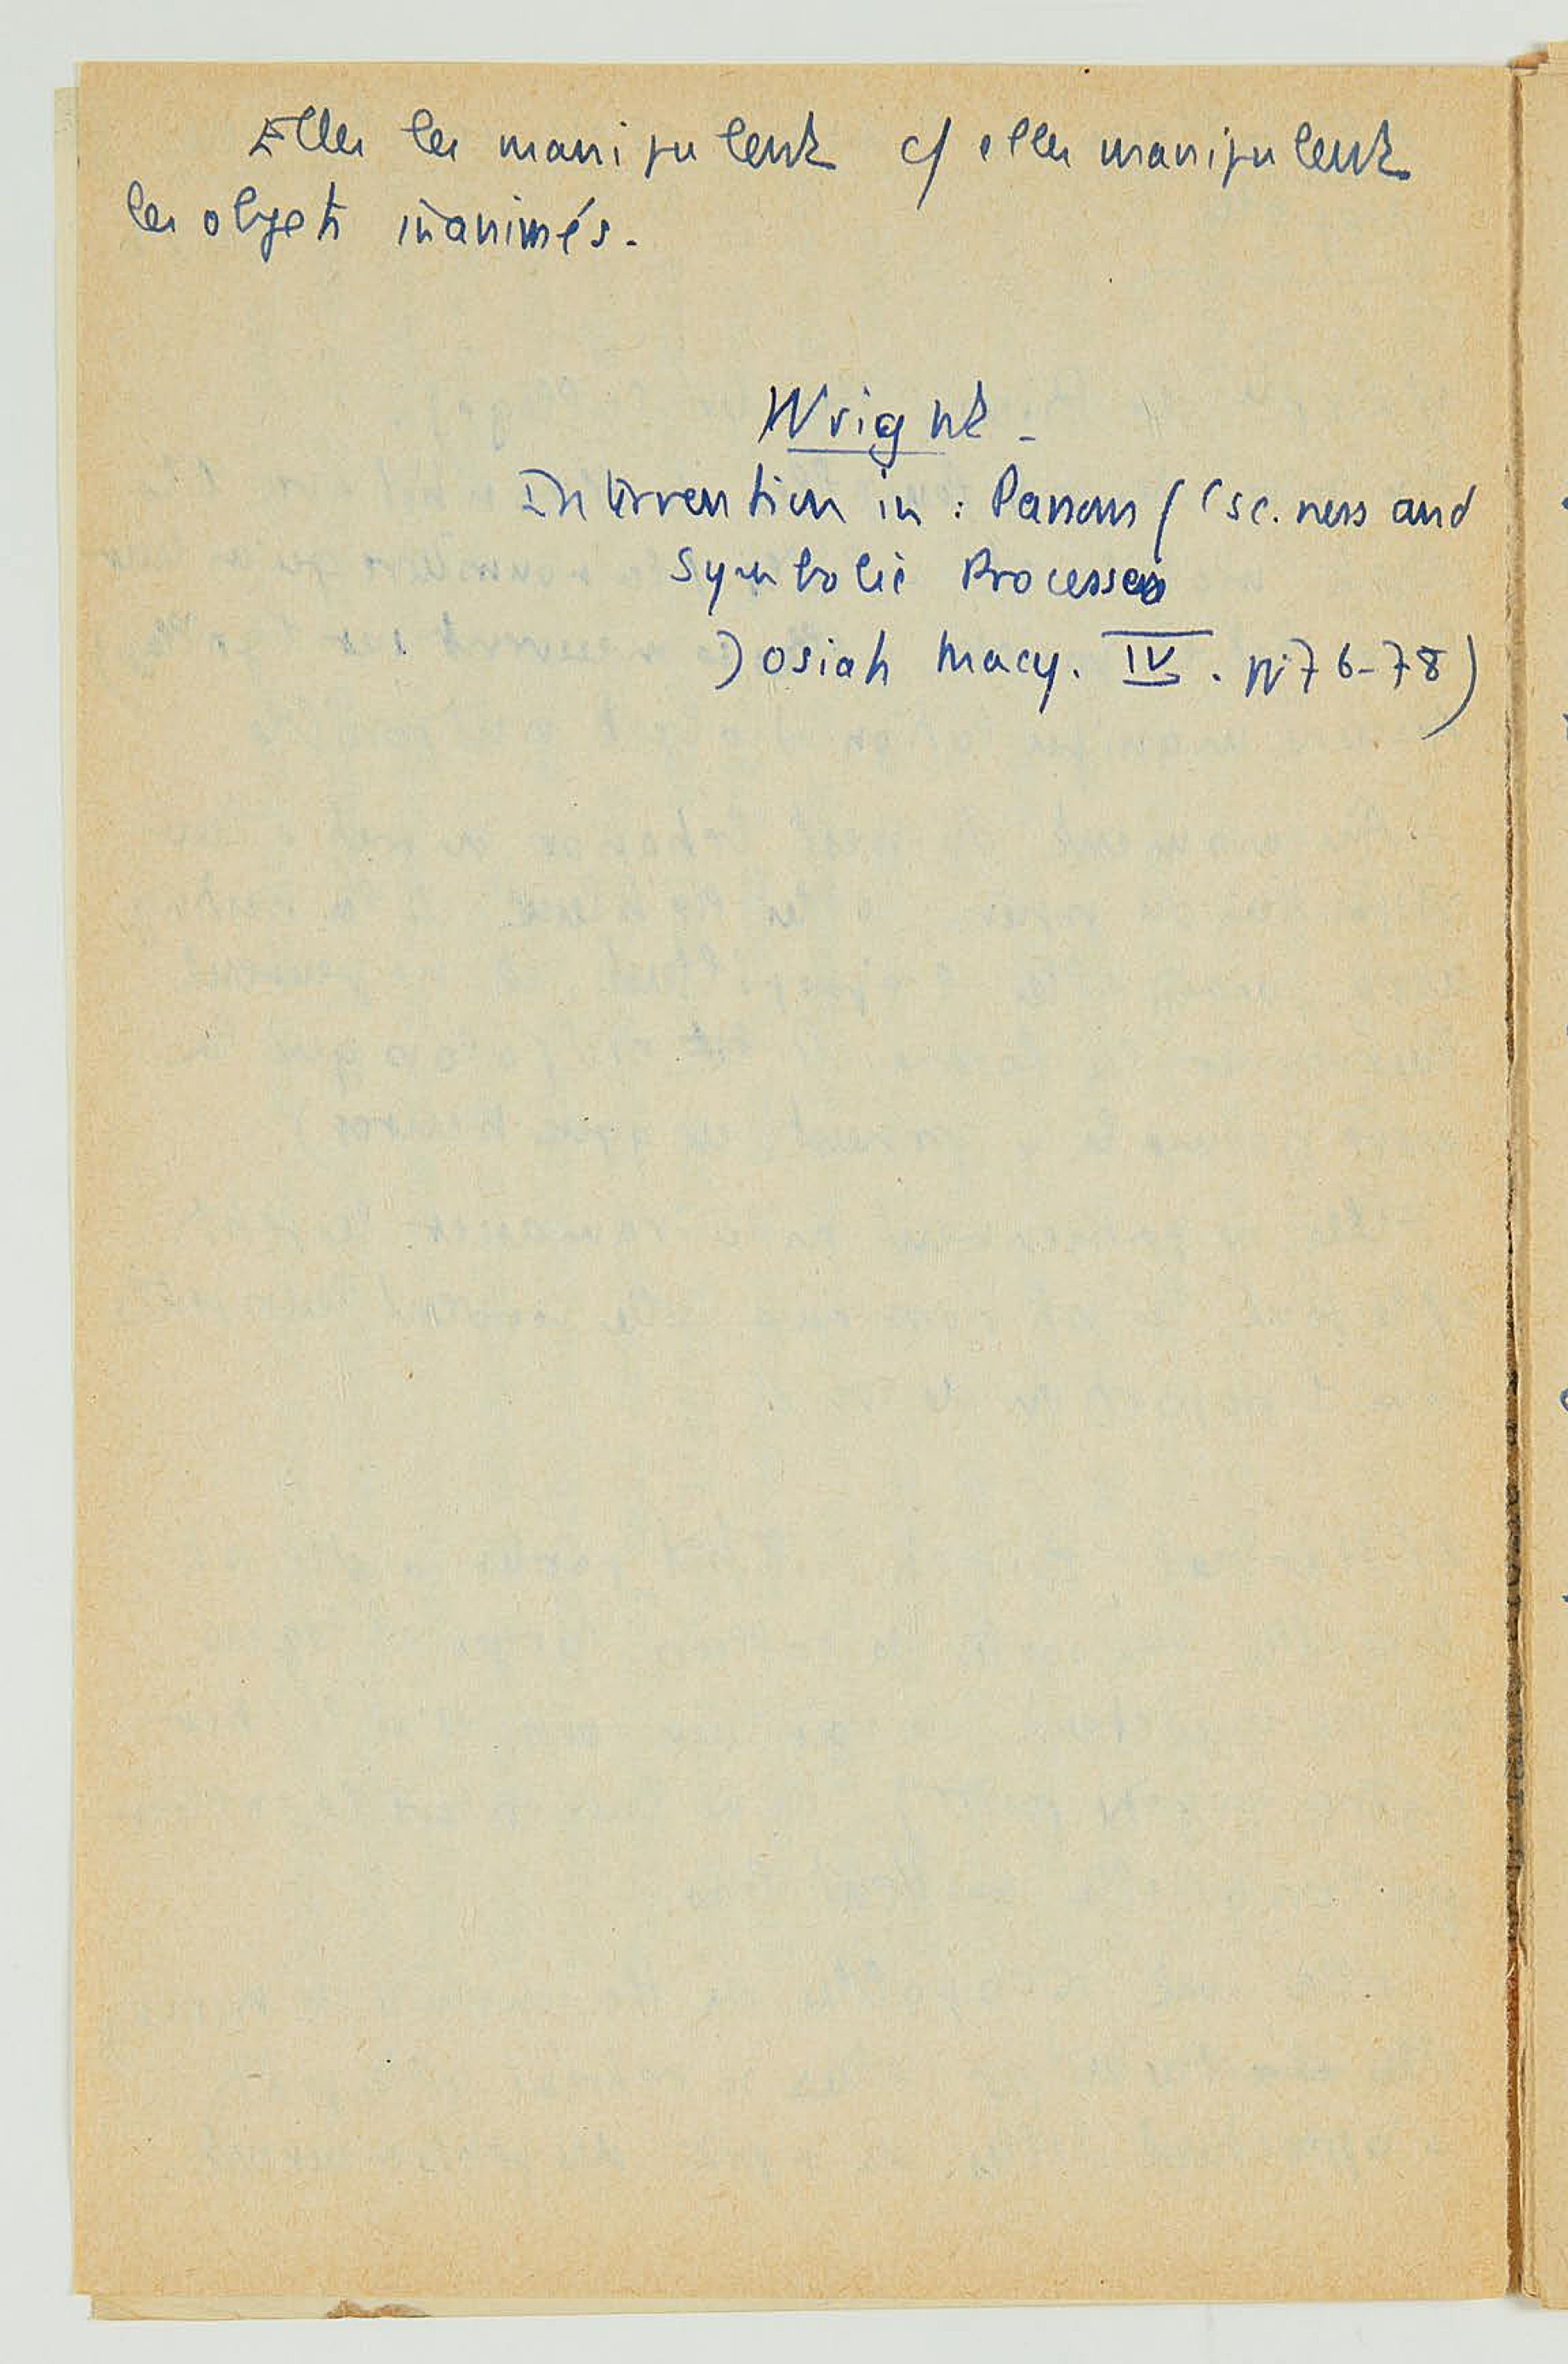 Elles les manipulent c/ elles manipulent
les objets inanimés.
Wright -
Intervention in : Parsons ( Csc.ness and
Symbolic Processes
Josiah Macy. IV. pp 76-78)